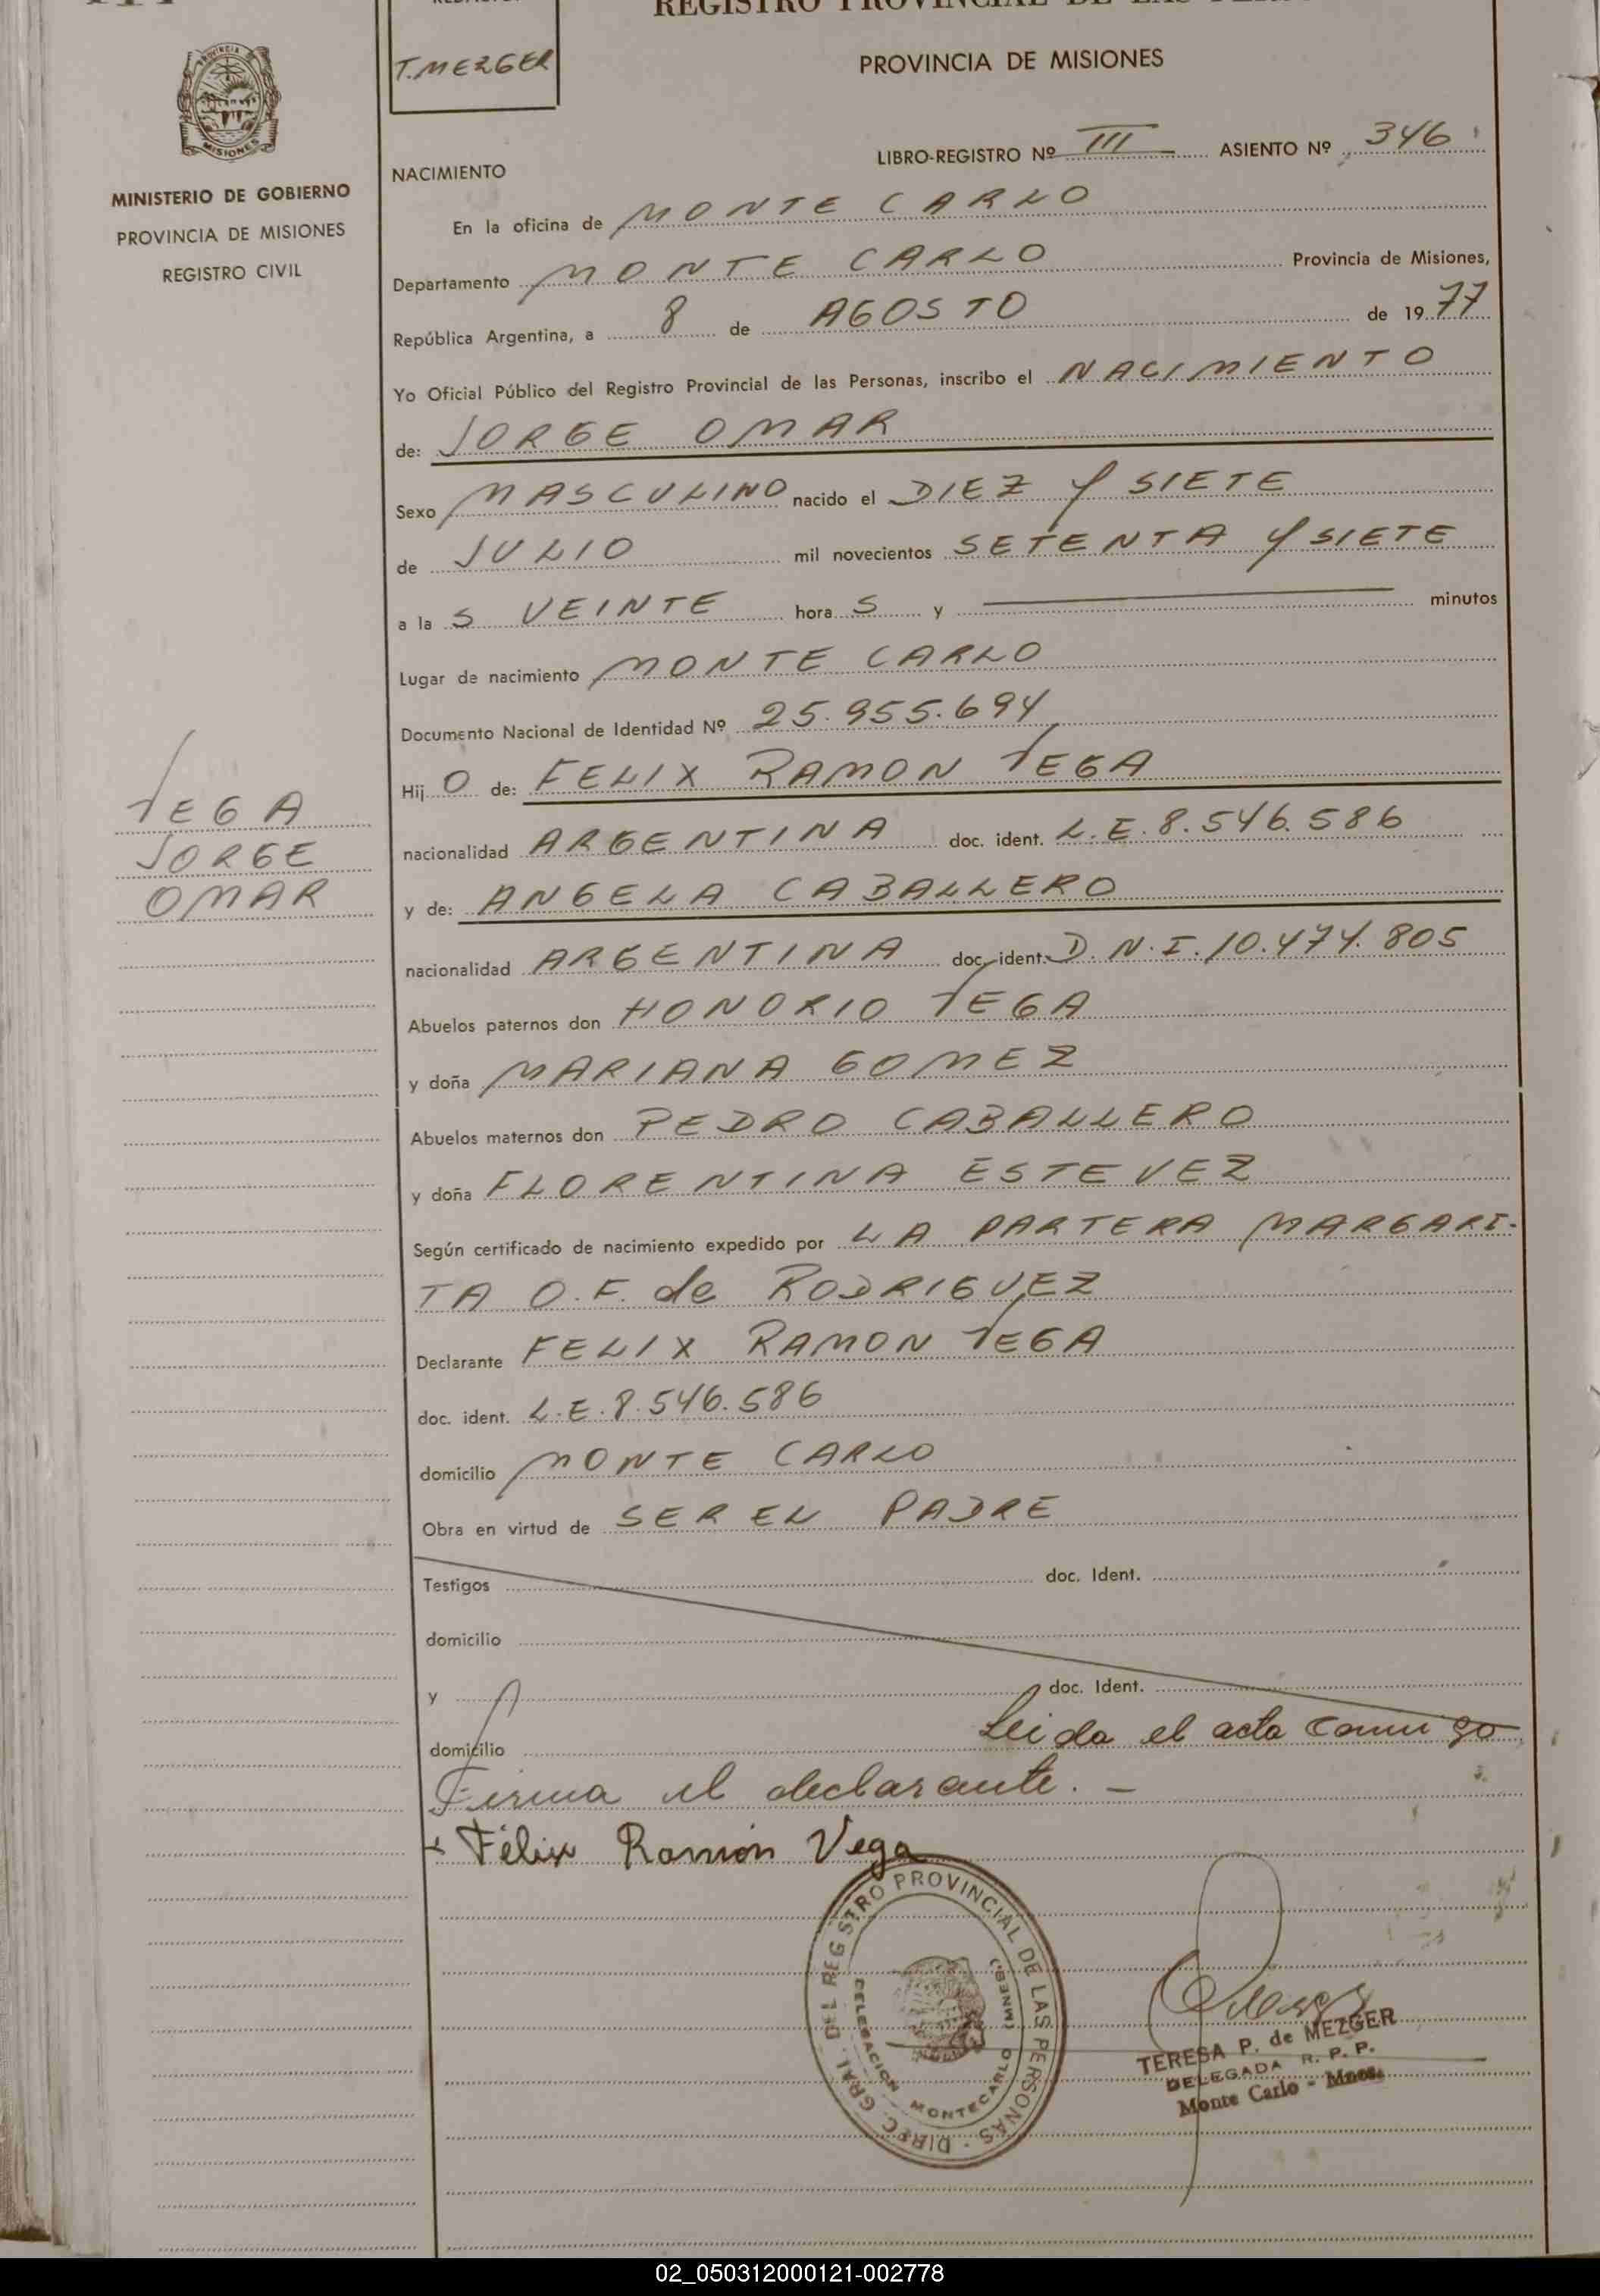 T. MEZGER
REGISTRO PROVINCIAL DE LAS
PROVINCIA DE MISIONES
MISIONES
MINISTERIO DE GOBIERNO
PROVINCIA DE MISIONES
REGISTRO CIVIL
LIBRO-REGISTRO Nº III ASIENTO Nº 346
NACIMIENTO
En la oficina de MONTE CARLO
Departamento MONTE CARLO Provincia de Misiones,
República Argentina, a 8 de AGOSTO de 1977
Yo Oficial Público del Registro Provincial de las Personas, inscribo el NACIMIENTO
de: JORGE OMAR
Sexo MASCULINO nacido el DIEZ Y SIETE
de JULIO mil novecientos SETENTA Y SIETE
a la S VEINTE hora S y minutos
Lugar de nacimiento MONTE CARLO
Documento Nacional de Identidad Nº 25.955.694
VEGA
JORGE
OMAR
Hij O de: FELIX RAMON VEGA
nacionalidad ARGENTINA doc. ident. L.E. 8.546.586
y de: ANGELA CABALLERO
nacionalidad ARGENTINA doc. ident. D.N.I. 10.474.805
Abuelos paternos don HONORIO VEGA
y doña MARIANA GOMEZ
Abuelos maternos don PEDRO CABALLERO
y doña FLORENTINA ESTEVEZ
Según certificado de nacimiento expedido por LA PARTERA MARGARI-
TA O.F. de RODRIGUEZ
Declarante FELIX RAMON VEGA
doc. ident. L.E. 8.546.586
domicilio MONTE CARLO
Obra en virtud de SER EL PADRE
Testigos doc. Ident.
domicilio
y doc. Ident.
domicilio Leida el acta conmigo
Firma el declarante. —
x Félix Ramón Vega
DIREC. GRAL. DEL REGISTRO PROVINCIAL DE LAS PERSONAS
DELEGACION MONTECARLO (MNES.)
TERESA P. de MEZGER
DELEGADA R. P. P.
Monte Carlo - Mnes.
02_050312000121-002778